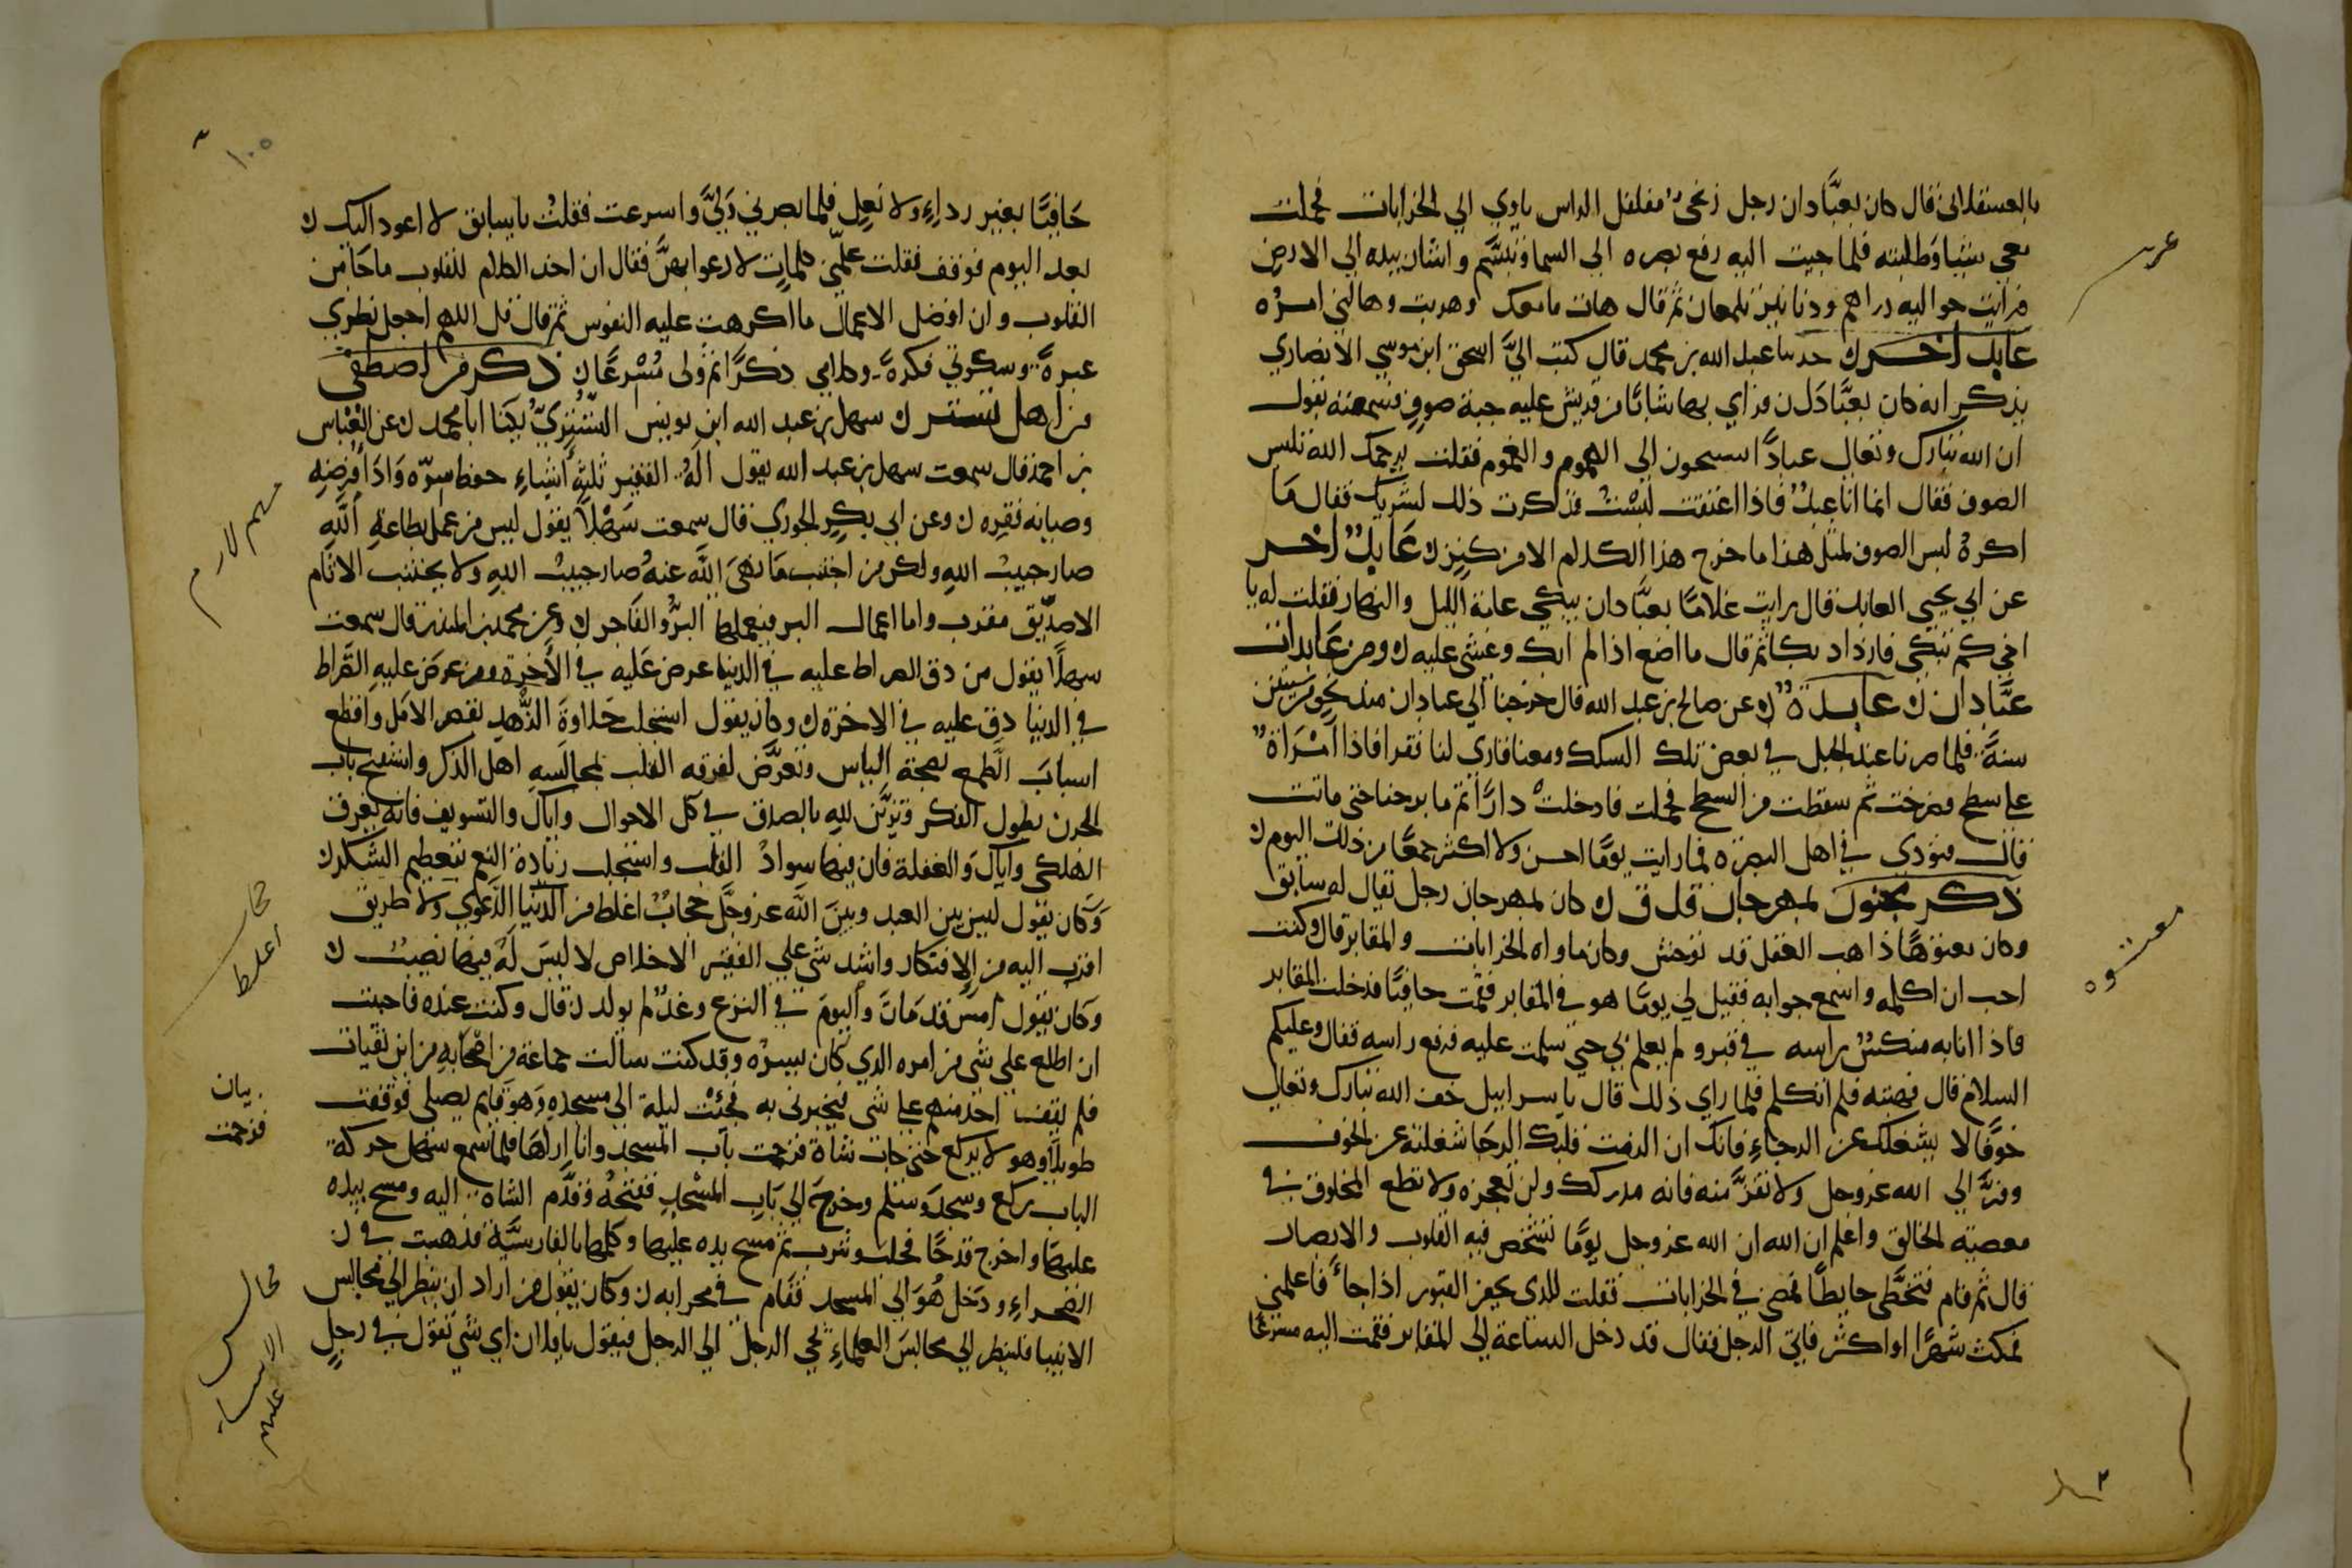 بالعسقلاني قال كان بعبَّادان رجل زنجيٌّ مفلفل الراس ياوي الي الخرابات فحملت
معي شيئا وطلبته فلما جيت اليه رفع بصره الي السما وتبسَّم واشار بيده الي الارض
فرايت حواليه دراهم ودنانير تلمعان ثم قال هات ما معك وهربت وهالني امره
عابد اخر حدثنا عبد الله بن محمد قال كتب اليَّ اسحق ابن موسي الانصاري
يذكر انه كان بعبَّادان فراي بها شابًا من قريش عليه جبة صوف فسمعته يقول
ان الله تبارك وتعالي عبادًا يسيحون الي الهموم والغموم فقلت يرحمك الله تلبس
الصوف فقال انما انا عبدٌ فاذا اعتقت لبست فذكرت ذلك لشريك فقال مَا
اكرهُ لبس الصوف لمثل هذا ما خرج هذا الكلام الا من كنز عَابدٌ اخر
عن ابي يحيي العابد قال رايت غلامًا بعبَّادان يبكي عامة الليل والنهار فقلت له يا
اخي كم تبكي فازداد بكا ثم قال ما اصنع اذا لم ابك وغشي عليه ومن عَابدات
عبَّادان عابدةٌ عن صالح بن عبد الله قال خرجنا الي عبادان منذ نحو من ستين
سنةً فلما صرنا عند الجبل في بعض تلك السكك ومعنا قاري لنا فقرا فاذا امْرَاةٌ
علي سطح فصرخت ثم سقطت من السطح فحملت فادخلتْ دارًا ثم ما برحنا حتي ماتت
قال فنودي في اهل البصرة فما رايت يومًا احسن ولا اكثر جمعًا من ذلك اليوم
ذكر مجنون بمهرجان قذق كان بمهرجان رجل يقال له سابق
وكان معتوهًا ذاهب العقل قد توحش وكان ماواه الخرابات والمقابر قال وكنت
احب ان اكلمه واسمع جوابه فقيل لي يومًا هو في المقابر فقمت حافيًا فدخلت المقابر
فاذا انا به منكسٌ براسه في قبر ولم يعلم بي حتي سلمت عليه فرفع راسه فقال وعليكم
السلام قال فهبته فلم اتكلم فلما راي ذلك قال يا اسرابيل خف الله تبارك وتعالي
خوفًا لا يشغلك عن الرجاءِ فانك ان الزمت قلبك الرجا شغلته عن الخوف
وفرَّ الي الله عز وجل ولا تفرَّ منه فانه مدركك ولن تعجزه ولا تطع المخلوق في
معصية الخالق واعلم ان الله ان الله عز وجل يومًا تشخص فيه القلوب والابصار
قال ثم قام فتخطَّي حايطًا فمضي في الخرابات فقلت للذي يحفر القبور اذا جاءَ فاعلمني
فمكث شهرًا او اكثر فاتي الرجل فقال قد دخل الساعة الي المقابر فقمت اليه مسرعًا
معتوه
حَافيًا بغير رداءِ ولا نَعلِ فلما بصر بي وَلّيَّ واسرعت فقلتُ يا سابق لا اعود اليك
بعد اليوم فوقف فقلت علّمني كلماتٍ لادعوا بهنَّ فقال ان احد الكلام للقلوب ما خامر
القلوب وان افضل الاعمال ما اكرهت عليه النفوس ثم قال قل اللهم اجعل نظري
عبرةً وسكوتي فكرةً وكلامي ذكرًا ثم ولي مُسْرعًا ذكر من اصطفي
من اهل تستر سهل بن عبد الله ابن يونس التُّسْتريُّ يكنا ابا محمد عن العَبَّاس
بن احمد قال سمعت سهل بن عبد الله يقول آلهُ الفقير ثلثة اشياءِ حفظ سرّه وَادَا فرضه
وصيانه فقره وعن ابي بكرِ الجوري قال سمعت سَهْلاً يقول ليس من عمل بطاعةِ اللَّهِ
صار حبيبَ اللهِ ولكن من اجتنب مَا نهَي اللَّه عنهُ صار حبيبَ اللهِ ولا يجتنب الاثام
الا صدّيق مقرب واما اعمال البر فيعملها البرُّ والفَاجر وعن محمد بن المنذر قال سمعت
سهلاً يقول من دق الصراط عليه في الدنيا عرض عَليه في الاخرة ومن عرضَ عليهِ الصَّراط
في الدنيا دق عليه في الاخرة وكان يقول استجلب حَلاوةَ الزُّهدِ بقصر الامَل واقطع
اسبابَ الطَّمع بصحة الياس وتعرَّض لفرقه القلب بمجالَسهِ اهل الذكر واستفتح باب
الحزن بطول الفكر وتزيَّن للهِ بالصدق في كل الاحوال وايَّاك والتسويف فانه يغرق
الهلكي وايَّاك وَالغفلة فان فيها سوادَ القلب واستجلب زيادة النعم بتعظيم الشكر
وَكان يقول ليس بين العبد وبينَ اللَّه عز وجلَّ حجابٌ اغلط من الدَّعوي ولا طريق
اقرب اليه من الافتقار واشد شي علي الفقير الاخلاص لا ليسَ لَهُ فيها نصيبٌ
وَكان يقول امسِ قد مَاتَ واليومَ في النزع وغدٌ لم يولد قال وكنت عنده فاحببت
ان اطلع علي شي من امره الذي كان يسِرّه وقد كنت سالت جماعة من اصْحَابهِ من اين تقيات
فلم يقف احد منهم علي شي فيخبرني به فجئتُ ليلة الي مسجدِه وَهوَ قايم يصلي فوقفت
طويلاً وهو لا يركع حتي جات شاة فزحمت باب المسجد وانا اراها فلما سمع سهل حركة
الباب ركع وسجدَ وسلم وخرجَ الي بَاب المسْجدِ ففتحهُ فقدَّم الشاة اليه ومسح بيده
عليها واخرج قدحًا فحلب وشرب ثم مسح يده عليها وكلمها بالفارسيَّةِ فذهبت في
الصحراءِ ودَخل هُوَ الي المسجد فقَام في محرابه وكان يقول من اراد ان ينظر الي مجالس
الانبيا فلينظر الي مجالسَ العلماءِ يجي الرجل الي الرجل فيقول يا فلان اي شي تقول في رجلٍ
بيان
فزحمت